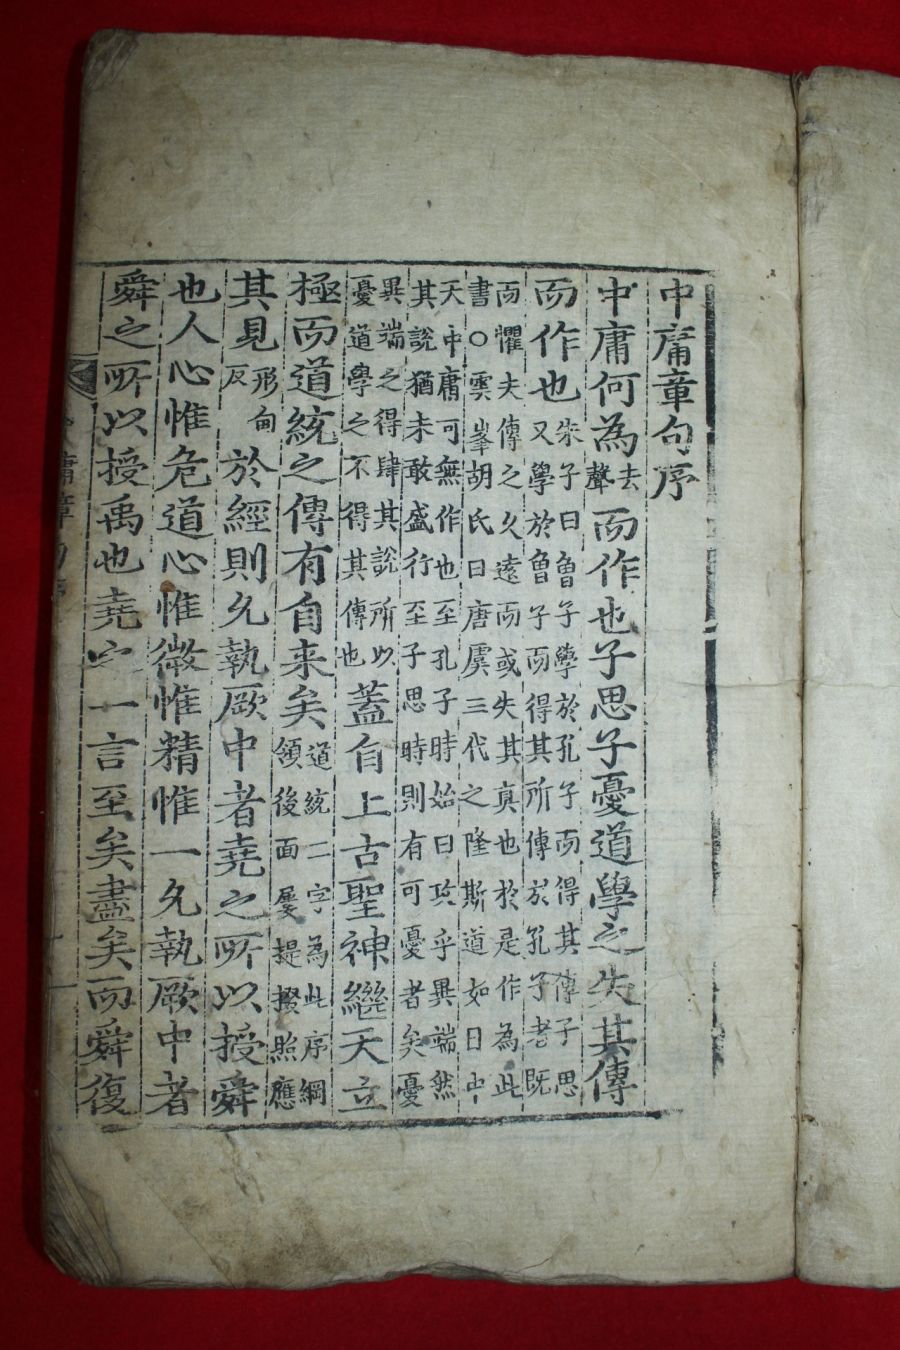 中庸章句序
中庸何為去聲而作也子思子憂道學之失其傳
而作也朱子曰曾子學於孔子而得其傳子思
又學於曾子而得其所傳於孔子者既
而懼夫傳之久遠而或失其真也於是作為此
書○雲峯胡氏曰唐虞三代之隆斯道如日中
天中庸可無作也至孔子時始曰攻乎異端然
其說猶未敢盛行至子思時則有可憂者矣憂
異端之得肆其說所以
憂道學之不得其傳也蓋自上古聖神繼天立
極而道統之傳有自来矣道統二字為此序綱
領後面屢提掇照應
其見形甸反於經則允執厥中者堯之所以授舜
也人心惟危道心惟微惟精惟一允執厥中者
舜之所以授禹也堯之一言至矣盡矣而舜復
庸章句序